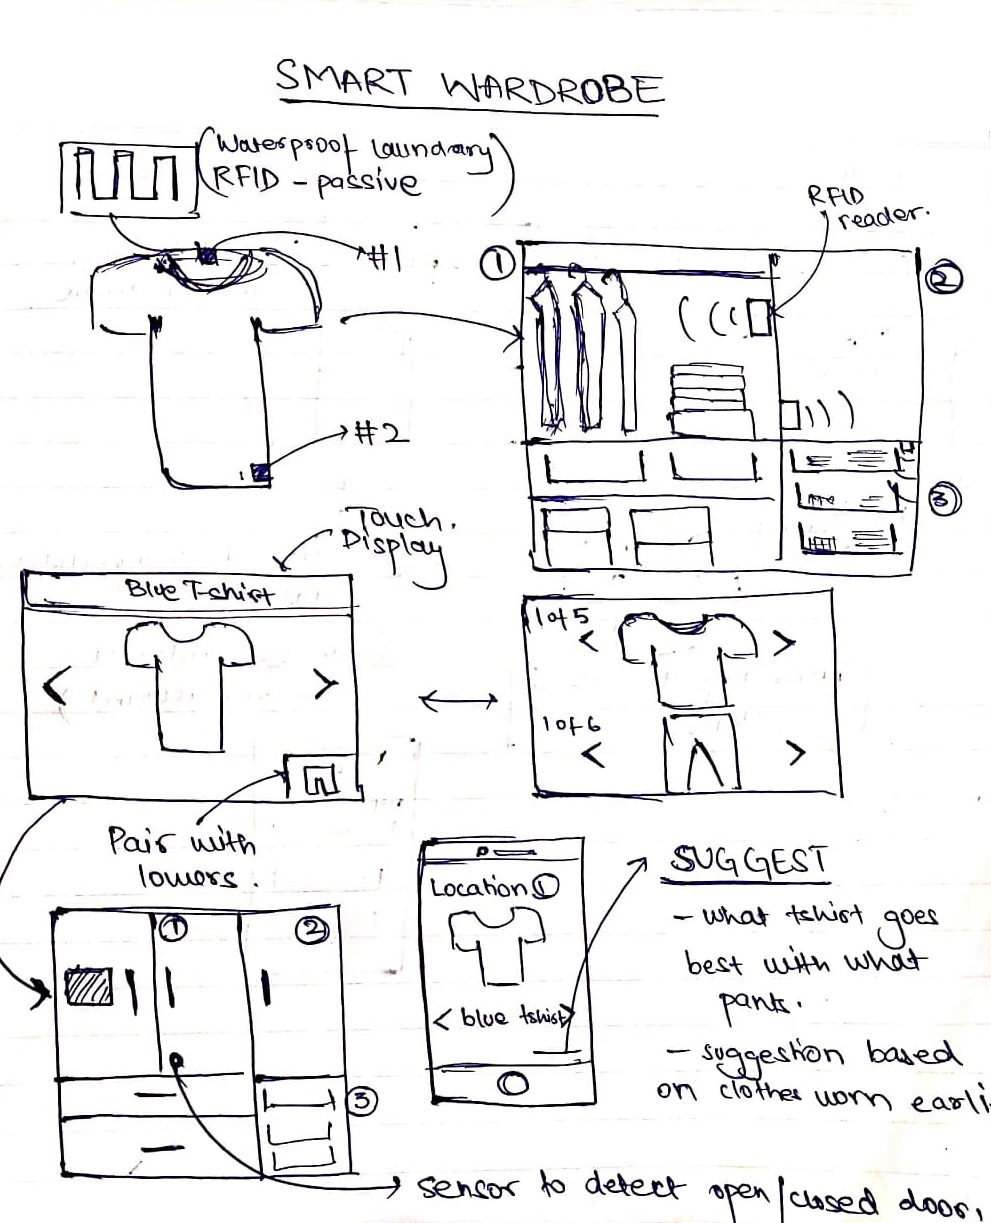 SMART WARDROBE
(Waterproof laundary
RFID - passive)
RFID
reader.
#1
①
②
#2
③
Touch.
Display
Blue T-shirt
1 of 5
<
>
<
>
1 of 6
<
>
Pair with
lowers.
Location ①
SUGGEST
- what tshirt goes
best with what
pants.
< blue tshirt>
- suggestion based
on clothes worn earli
①
②
③
sensor to detect open/closed door,